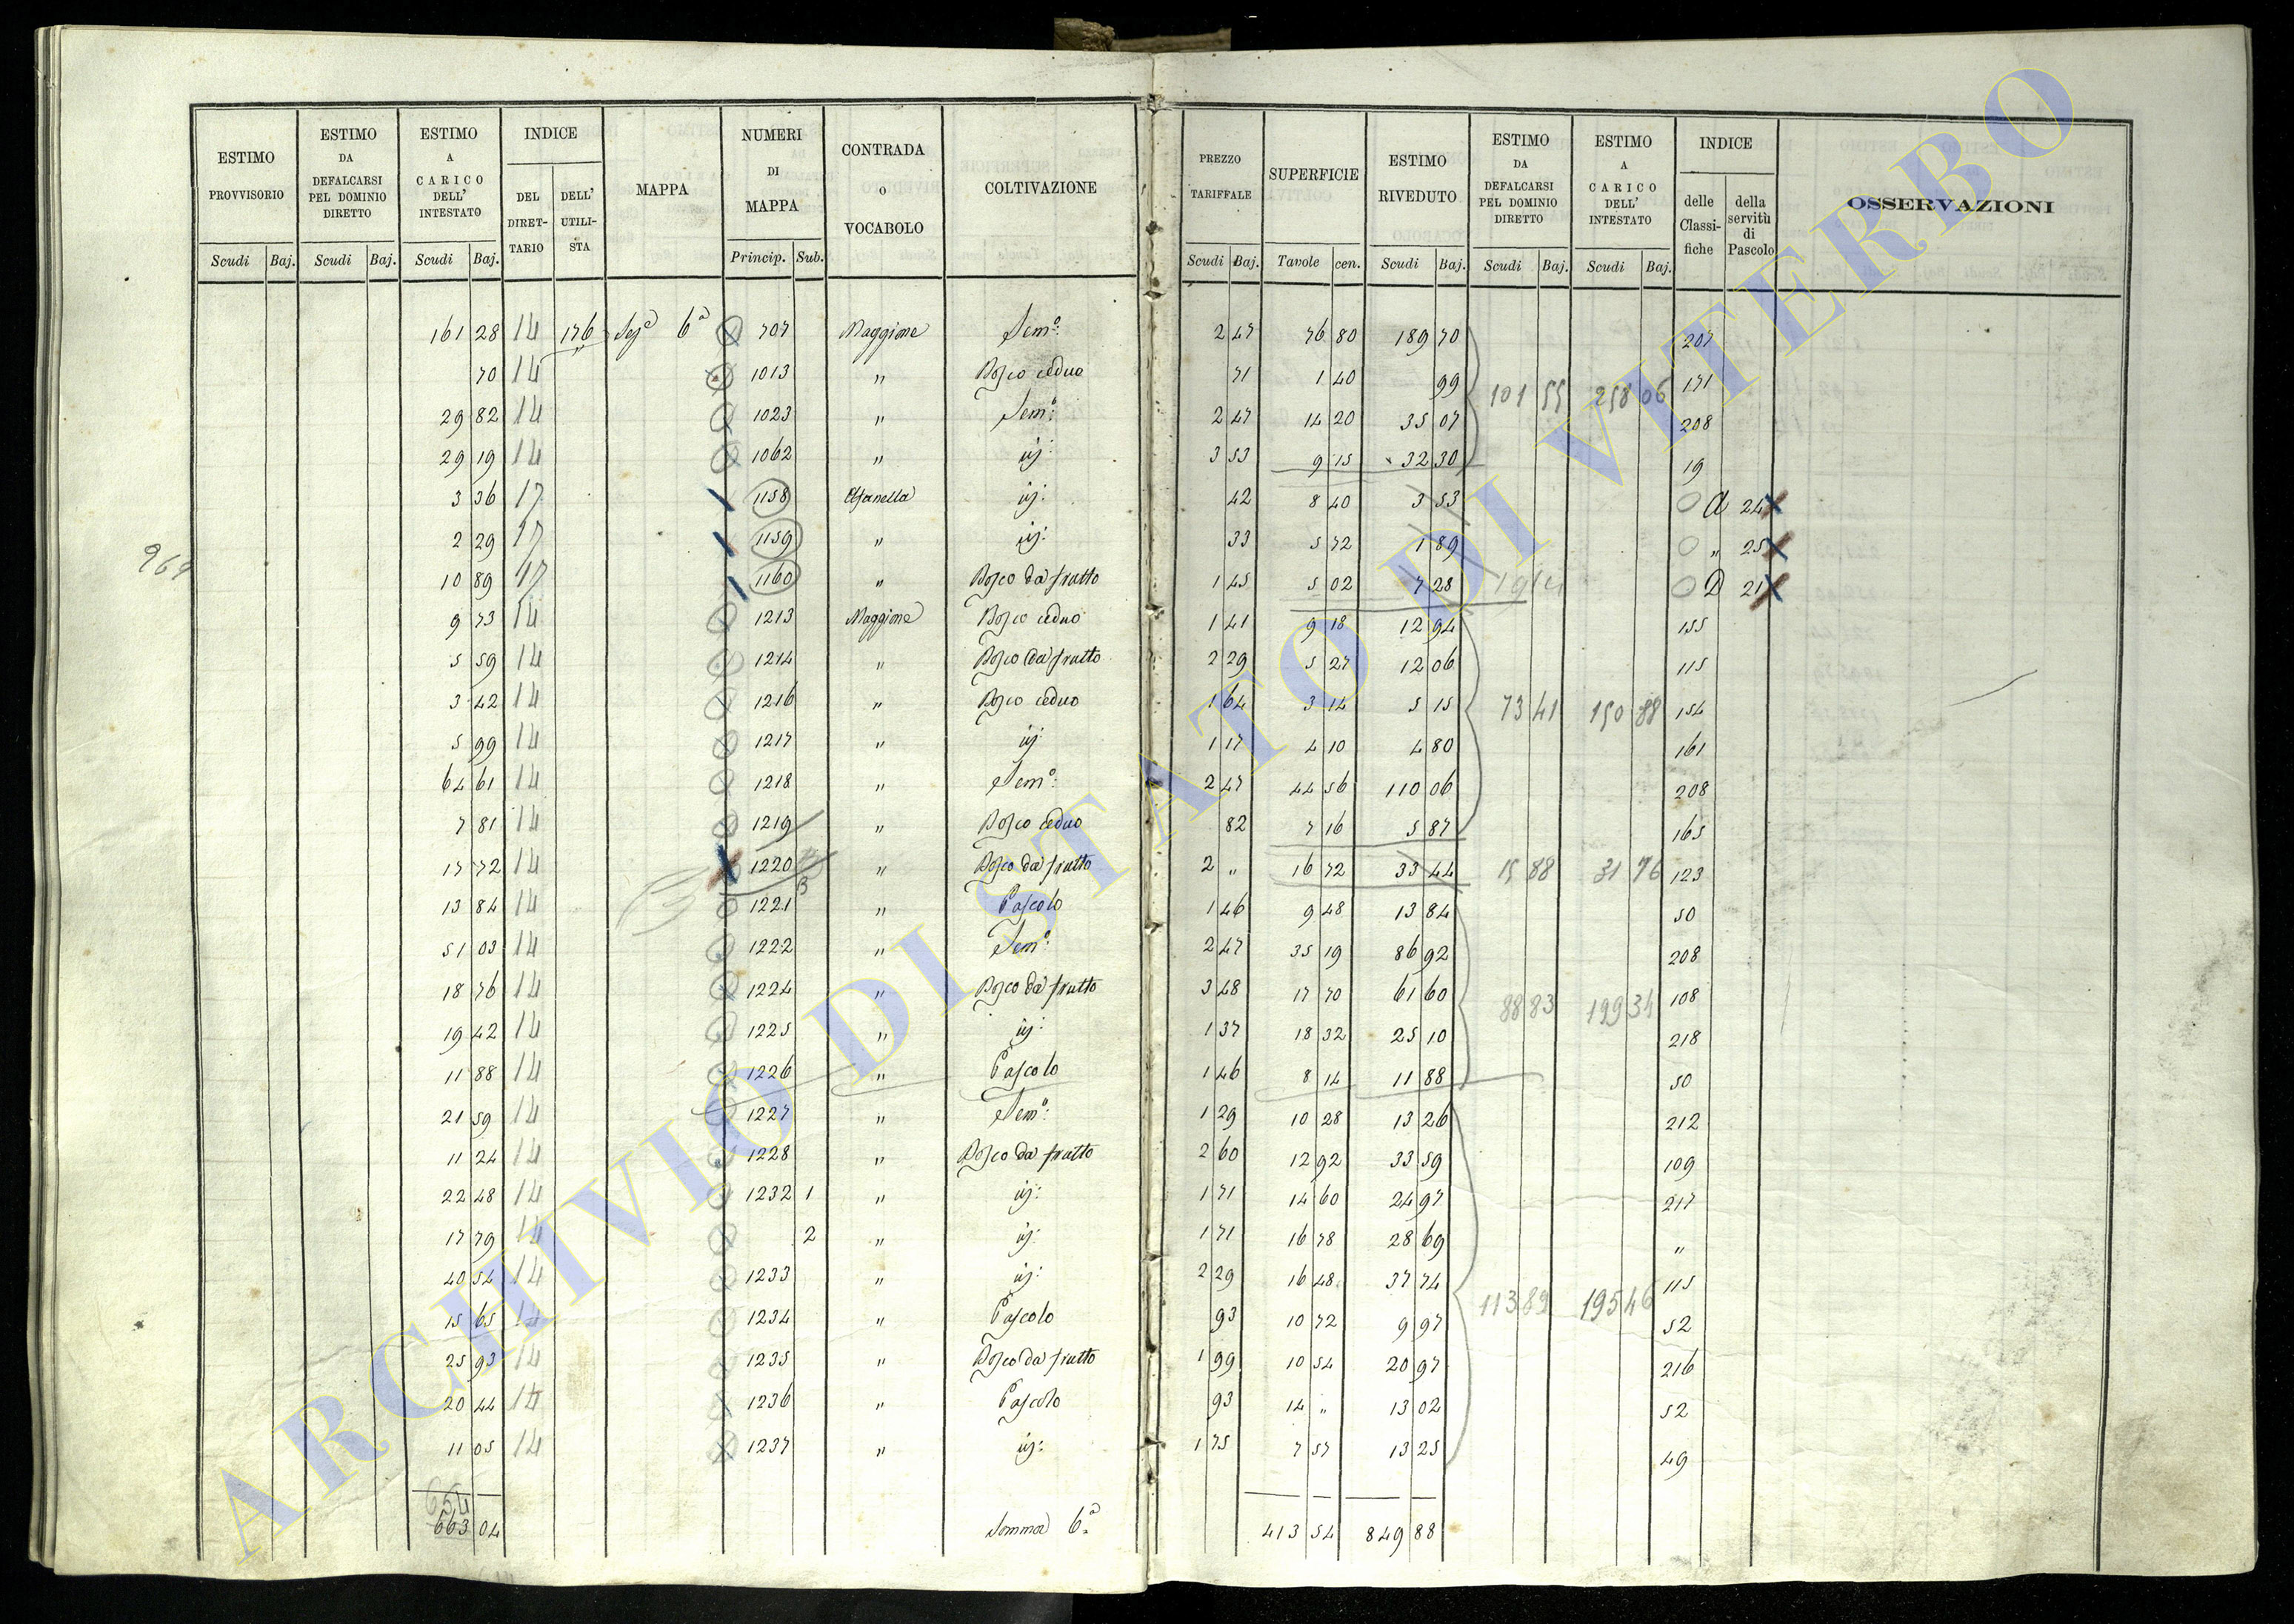 ESTIMO PROVVISORIO | ESTIMO DA DEFALCARSI PEL DOMINIO DIRETTO | ESTIMO A CARICO DELL' INTESTATO | INDICE DEL DIRET-TARIO | DELL' UTILI-STA | MAPPA | NUMERI DI MAPPA | CONTRADA O VOCABOLO | COLTIVAZIONE | PREZZO TARIFFALE | SUPERFICIE | ESTIMO RIVEDUTO | ESTIMO DA DEFALCARSI PEL DOMINIO DIRETTO | ESTIMO A CARICO DELL' INTESTATO | INDICE delle Classi-fiche | della servitù di Pascolo | OSSERVAZIONI
Scudi Baj. | Scudi Baj. | Scudi Baj. | Princip. Sub. | Scudi Baj. | Tavole cen. | Scudi Baj. | Scudi Baj. | Scudi Baj.
161 28 14 176 6ª 707 Maggione Sem.º 2 47 76 80 189 70 207
70 14 1013 " Bosco ceduo 71 1 40 99 101 55 258 06 171
29 82 14 1023 " Sem.º 2 47 14 20 35 07 208
29 19 14 1062 " iij: 3 53 9 15 32 30 19
3 36 17 1158 iij: 42 8 40 3 53 A 24
2 29 17 1159 " iij: 33 5 72 1 89 " 25
964
10 89 17 1160 " Bosco da frutto 1 45 5 02 7 28 D 21
9 73 14 1213 Maggione Bosco ceduo 1 41 9 18 12 94 155
5 59 14 1214 " Bosco da frutto 2 29 5 27 12 06 115
3 42 14 1216 " Bosco ceduo 1 64 3 14 5 15 73 41 150 88 154
5 99 14 1217 " iij 1 17 4 10 4 80 161
64 61 14 1218 " Sem.º 2 47 44 56 110 06 208
7 81 14 1219 " Bosco ceduo 82 7 16 5 87 165
17 72 14 1220 " Bosco da frutto 2 " 16 72 33 44 15 88 31 76 123
13 84 14 1221 " Pascolo 1 46 9 48 13 84 50
51 03 14 1222 " Sem.º 2 47 35 19 86 92 208
18 76 14 1224 " Bosco da frutto 3 48 17 70 61 60 88 83 199 34 108
19 42 14 1225 " iij: 1 37 18 32 25 10 218
11 88 14 1226 " Pascolo 1 46 8 14 11 88 50
21 59 14 1227 " Sem.º 1 29 10 28 13 26 212
11 24 14 1228 " Bosco da frutto 2 60 12 92 33 59 109
22 48 14 1232 1 " iij: 1 71 14 60 24 97 217
17 79 14 2 " iij: 1 71 16 78 28 69 "
40 54 14 1233 " iij: 2 29 16 48 37 74 115
15 65 14 1234 " Pascolo 93 10 72 9 97 113 89 195 46 52
25 93 14 1235 " Bosco da frutto 1 99 10 54 20 97 216
20 44 14 1236 " Pascolo 93 14 " 13 02 52
11 05 14 1237 " iij: 1 75 7 57 13 25 49
654
663 04 Somma 6ª 413 54 849 88
ARCHIVIO DI STATO DI VITERBO